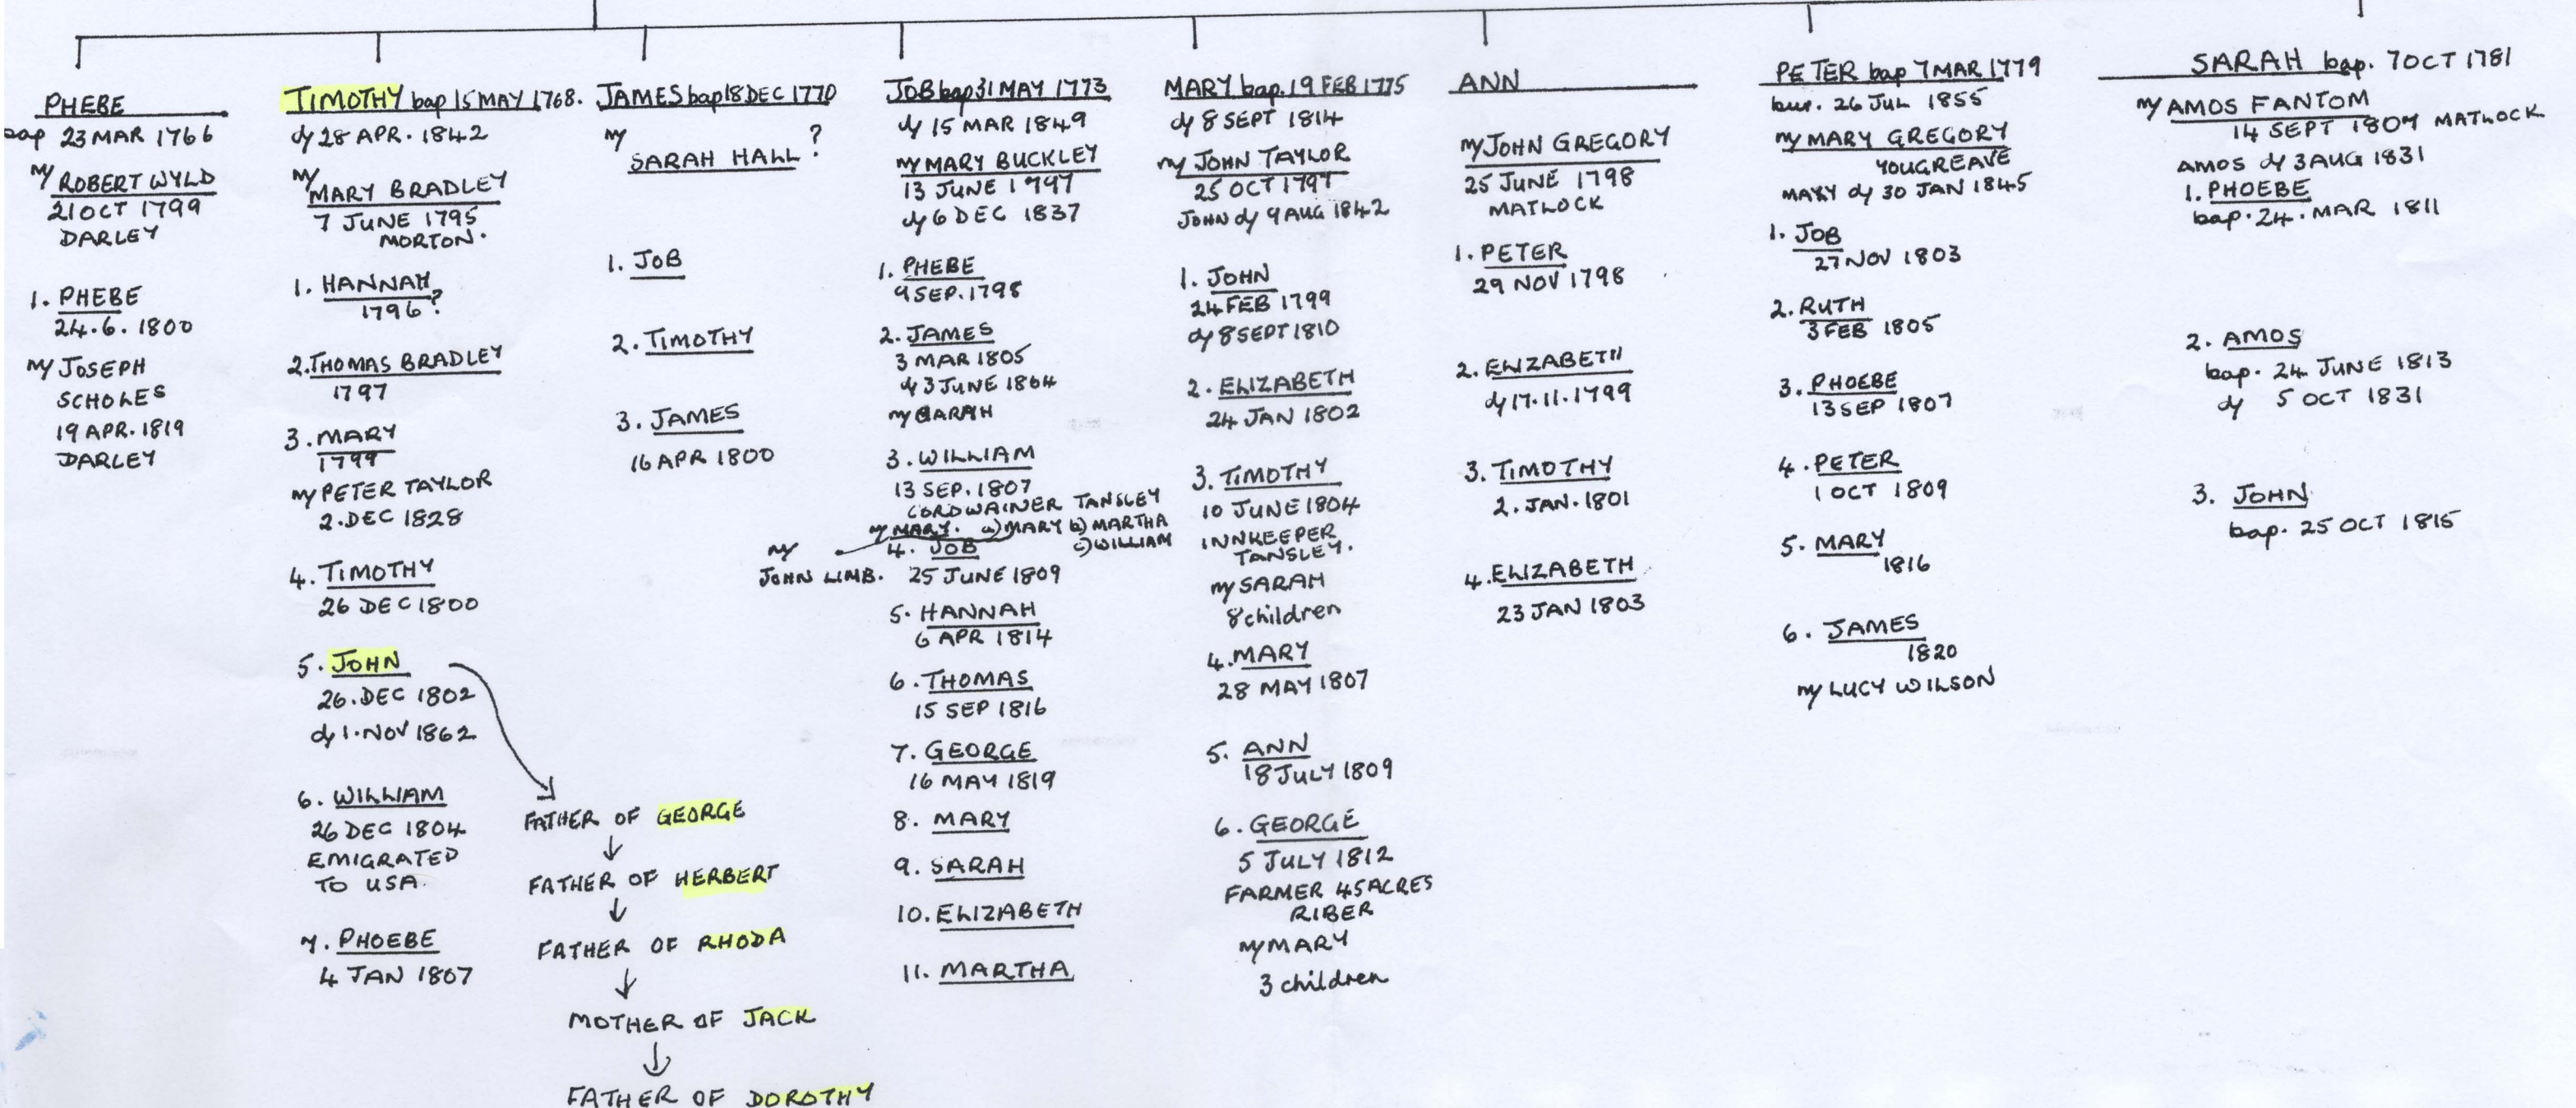 PHEBE
bap 23 MAR 1766
m/ ROBERT WYLD
21 OCT 1799
DARLEY
1. PHEBE
24.6.1800
m/ JOSEPH
SCHOLES
19 APR. 1819
DARLEY
TIMOTHY bap 15 MAY 1768.
d/ 28 APR. 1842
m/
MARY BRADLEY
7 JUNE 1795
MORTON.
1. HANNAH
1796?
2. THOMAS BRADLEY
1797
3. MARY
1799
m/ PETER TAYLOR
2. DEC 1828
4. TIMOTHY
26 DEC 1800
5. JOHN
26. DEC 1802
d/ 1. NOV 1862
6. WILLIAM
26 DEC 1804
EMIGRATED
TO USA.
7. PHOEBE
4 JAN 1807
FATHER OF GEORGE
FATHER OF HERBERT
FATHER OF RHODA
MOTHER OF JACK
FATHER OF DOROTHY
JAMES bap 18 DEC 1770
m/ ?
SARAH HALL
1. JOB
2. TIMOTHY
3. JAMES
16 APR 1800
JOB bap 31 MAY 1773
d/ 15 MAR 1849
m/ MARY BUCKLEY
13 JUNE 1797
d/ 6 DEC 1837
1. PHEBE
9 SEP. 1798
2. JAMES
3 MAR 1805
d/ 3 JUNE 1864
m/ SARAH
3. WILLIAM
13 SEP. 1807
CORDWAINER TANSLEY
m/ MARY. a) MARY b) MARTHA
c) WILLIAM
m/
JOHN LIMB.
4. JOB
25 JUNE 1809
5. HANNAH
6 APR 1814
6. THOMAS
15 SEP 1816
7. GEORGE
16 MAY 1819
8. MARY
9. SARAH
10. ELIZABETH
11. MARTHA
MARY bap. 19 FEB 1775
d/ 8 SEPT 1814
m/ JOHN TAYLOR
25 OCT 1797
JOHN d/ 9 AUG 1842
1. JOHN
24 FEB 1799
d/ 8 SEPT 1810
2. ELIZABETH
24 JAN 1802
3. TIMOTHY
10 JUNE 1804
INNKEEPER
TANSLEY.
m/ SARAH
8 children
4. MARY
28 MAY 1807
5. ANN
18 JULY 1809
6. GEORGE
5 JULY 1812
FARMER 45 ACRES
RIBER
m/ MARY
3 children
ANN
m/ JOHN GREGORY
25 JUNE 1798
MATLOCK
1. PETER
29 NOV 1798
2. ELIZABETH
d/ 17.11.1799
3. TIMOTHY
2. JAN. 1801
4. ELIZABETH
23 JAN 1803
PETER bap 7 MAR 1779
bur. 26 JUL 1855
m/ MARY GREGORY
YOUGREAVE
MARY d/ 30 JAN 1845
1. JOB
27 NOV 1803
2. RUTH
3 FEB 1805
3. PHOEBE
13 SEP 1807
4. PETER
1 OCT 1809
5. MARY
1816
6. JAMES
1820
m/ LUCY WILSON
SARAH bap. 7 OCT 1781
m/ AMOS FANTOM
14 SEPT 1807 MATLOCK
AMOS d/ 3 AUG 1831
1. PHOEBE
bap. 24. MAR 1811
2. AMOS
bap. 24 JUNE 1813
d/ 5 OCT 1831
3. JOHN
bap. 25 OCT 1815